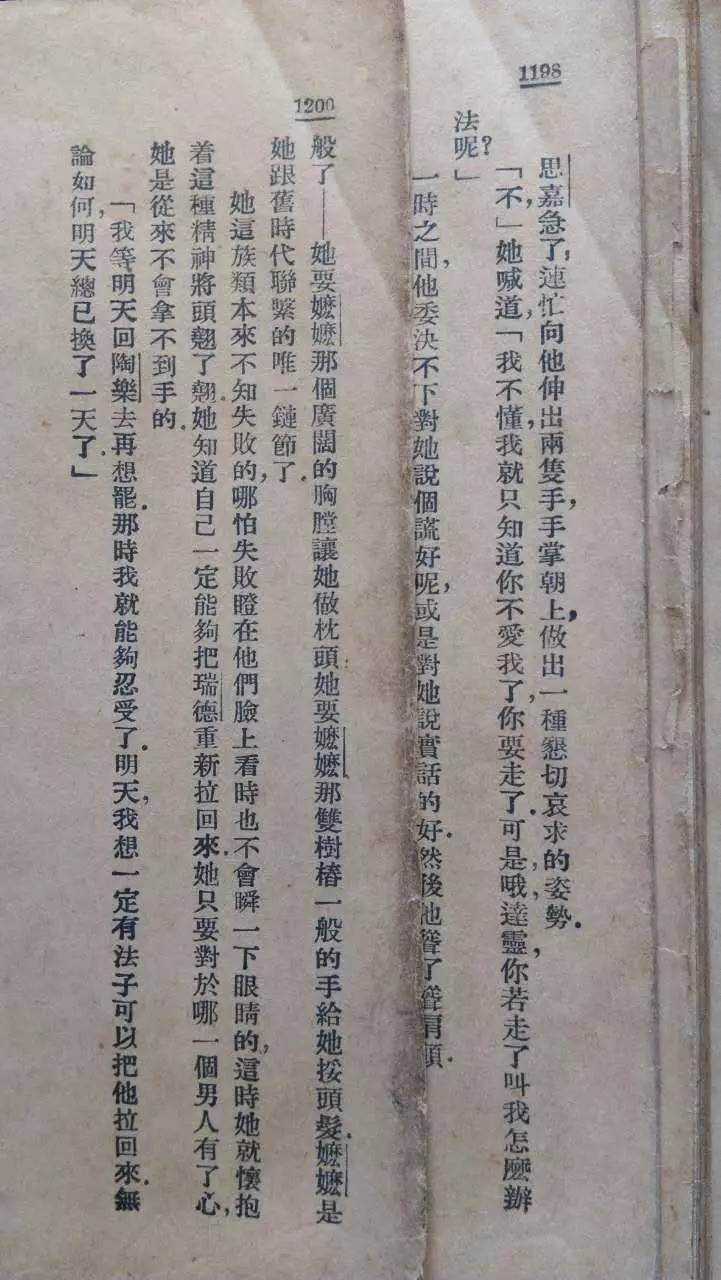 1198
思嘉急了,連忙向他伸出兩隻手,手掌朝上,做出一種懇切哀求的姿勢.
「不,」她喊道,「我不懂,我就只知道你不愛我了,你要走了.可是,哦,達靈,你若走了,叫我怎麼辦
法呢?」
一時之間,他委決不下對她說個謊好呢,或是對她說實話的好.然後他聳了聳肩頭.
1200
般了——她要嬤嬤那個廣闊的胸膛讓她做枕頭;她要嬤嬤那雙樹樁一般的手給她挼頭髮.嬤嬤是
她跟舊時代聯繫的唯一鏈節了.
她這族類本來不知失敗的,哪怕失敗瞪在他們臉上看時也不會瞬一下眼睛的,這時她就懷抱
着這種精神將頭翹了翹.她知道自己一定能夠把瑞德重新拉回來.她只要對於哪一個男人有了心,
她是從來不會拿不到手的.
「我等明天回陶樂去再想罷.那時我就能夠忍受了.明天,我想一定有法子可以把他拉回來.無
論如何,明天總已換了一天了.」